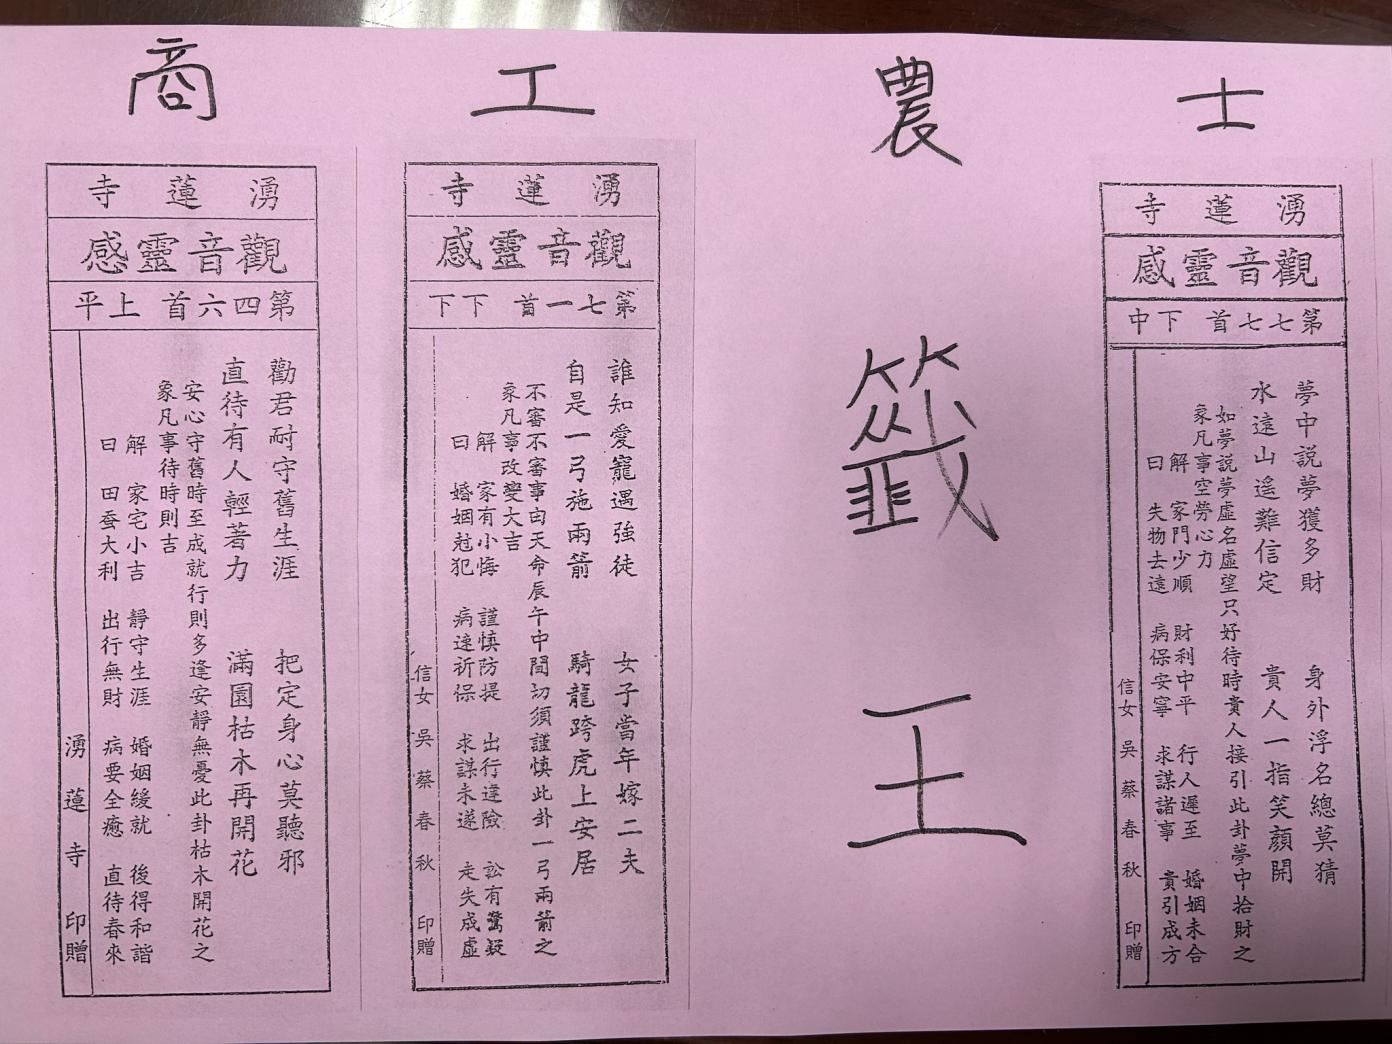 士
湧蓮寺
觀音靈感
第七七首 下中
夢中説夢獲多財 身外浮名總莫猜
水遠山遙難信定 貴人一指笑顏開
如夢説夢虛名虛望只好待時貴人接引此卦夢中拾財之
象凡事空勞心力
解 家門少順 財利中平 行人遲至 婚姻未合
曰 失物去遠 病保安寧 求謀諸事 貴引成方
信女 吳蔡春秋 印贈
農
籤
王
工
湧蓮寺
觀音靈感
第七一首 下下
誰知愛寵遇強徒 女子當年嫁二夫
自是一弓施兩箭 騎龍跨虎上安居
不審不審事由天命辰午中間切須謹慎此卦一弓兩箭之
象凡事改變大吉
解 家有小悔 謹慎防提 出行違險 訟有驚疑
曰 婚姻尅犯 病速祈保 求謀未遂 走失成虛
信女 吳蔡春秋 印贈
商
湧蓮寺
觀音靈感
第四六首 上平
勸君耐守舊生涯 把定身心莫聽邪
直待有人輕著力 滿園枯木再開花
安心守舊時至成就行則多逢安靜無憂此卦枯木開花之
象凡事待時則吉
解 家宅小吉 靜守生涯 婚姻緩就 後得和諧
曰 田蚕大利 出行無財 病要全癒 直待春來
湧蓮寺 印贈